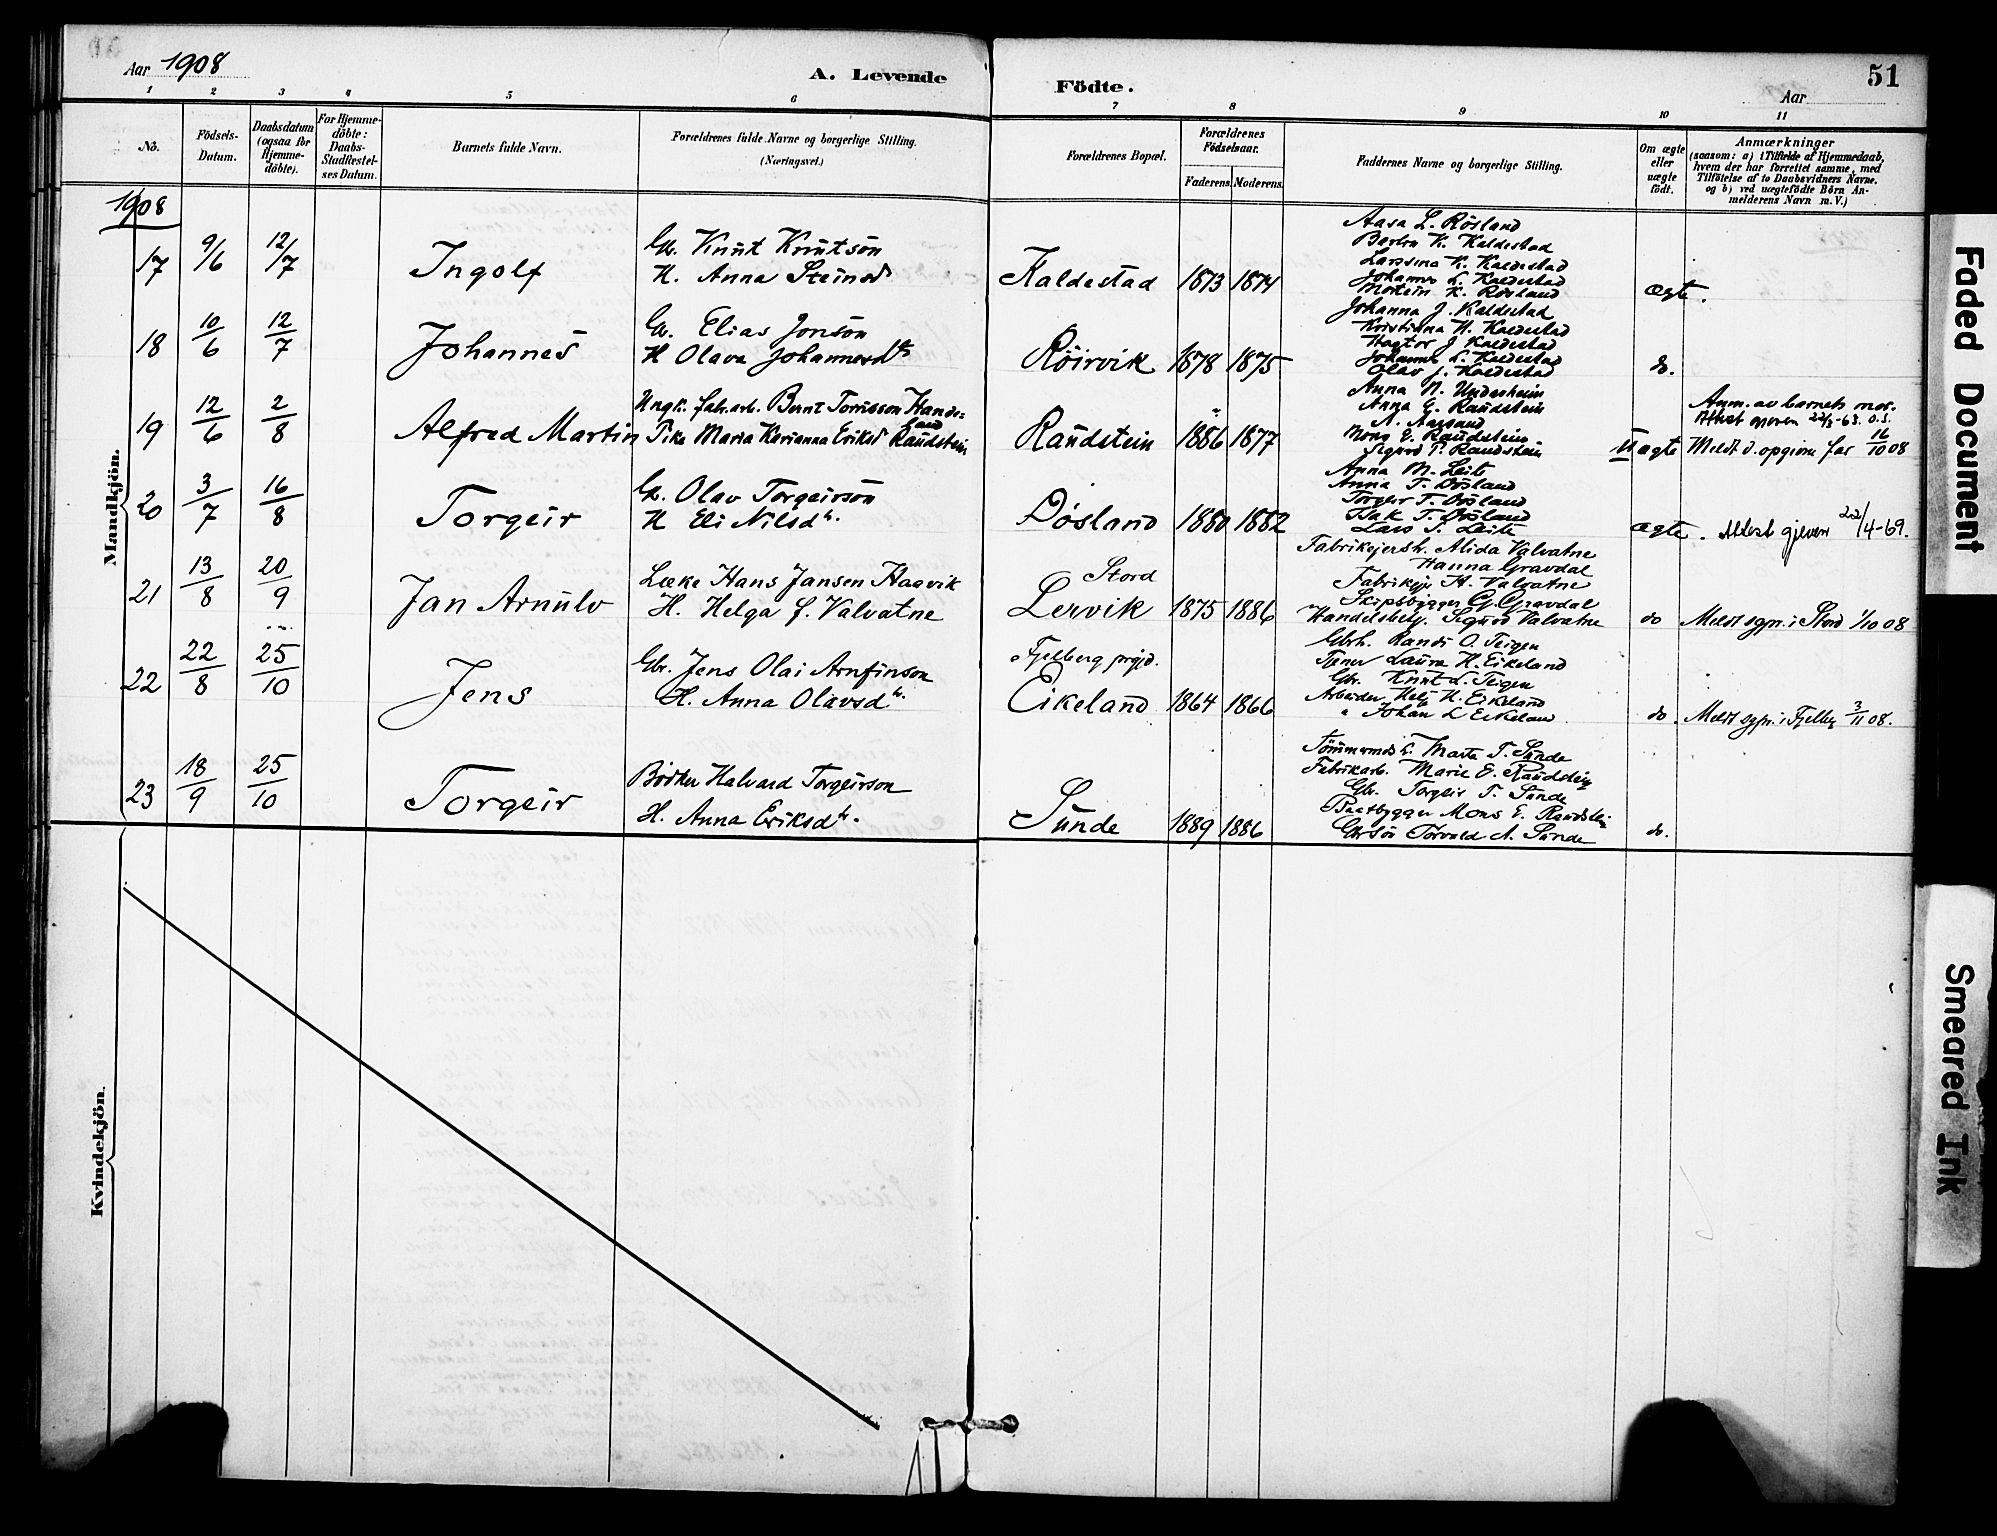 Aar 1908
A. Levende
Födte.
Aar
51
1 2 3 4 5 6 7 8 9 10 11
No.
Födsels-
Datum.
Daabsdatum
(ogsaa for
Hjemme-
döbte).
For Hjemme-
döbte:
Daabs-
Stadfæstel-
ses Datum.
Barnets fulde Navn.
Forældrenes fulde Navne og borgerlige Stilling.
(Næringsvei.)
Forældrenes Bopæl.
Forældrenes
Födselsaar.
Faderens. Moderens.
Faddernes Navne og borgerlige Stilling.
Om ægte
eller
uægte
födt.
Anmærkninger
(saasom: a) i Tilfælde af Hjemmedaab,
hvem der har forrettet samme, med
Tilföielse af to Daabsvidners Navne,
og b) ved uægtefödte Börn An-
melderens Navn m. V.)
1908
Mandkjön.
17 9/6 12/7 Ingolf
Gbr. Knut Knutsön
H. Anna Steinsd
Kaldestad 1873 1874
Aasa L. Røsland
K. Kaldestad
K. Kaldestad
Johannes L. Kaldestad
K. Røsland
ægte.
18 10/6 12/7 Johannes
Gbr. Elias Jonsön
H Olava Johannesdtr
Röirvik 1878 1875
Johanna J. Kaldestad
Kristianna H. Kaldestad
J Kaldestad
Johannes L. Kaldestad
Olav J. Kaldestad
do.
19 12/6 2/8 Alfred Martin
Ungk. fabr.arb. Bernt Tomisson Hande-
land
Pike Maria Karianna Eriksd Raudstein
Raudstein 1886 1877
Anna N. Undesheim
Anna G. Raudstein
Mons E. Raudstein
Sigurd P. Raudstein
Uægte
Anm. av barnets mor.
Attest moren 22/3-63. O.S.
Meldt d. opgivne far 16/10 08
20 3/7 16/8 Torgeir
Gbr. Olav Torgeirsön
H Eli Nilsdtr.
Døsland 1880 1882
Anna M. Leite
Anna T. Døsland
Torgeir T. Døsland
Isak T. Døsland
Lars T. Leite
ægte. Attest gjeven 22/4-69.
21 13/8 20/9 Jan Arnulv
Læke Hans Jansen Haavik
H. Helga f. Valvatne
Stord
Lervik 1875 1886
Fabrikejersk. Alida Valvatne
Hanna Gravdal
Fabrikejer H. Valvatne
Skipsbygger G. Gravdal
Handelsbetj. Sigurd Valvatne
do Meldt sgpr. i Stord 1/10 08
22 22/8 25/10 Jens
Gbr. Jens Olai Arnfinson
H. Anna Olavsdtr.
Fjelberg prgjd.
Eikeland 1864 1866
Gbrh. Randi O. Teigen
Tjener Laura H. Eikeland
Gbr. Knut L. Teigen
Arbeider Helg H. Eikeland
" Johan L Eikeland
do. Meldt sgpr. i Fjelbg 3/11 08.
23 18/9 25/10 Torgeir
Bødker Halvard Torgeirson
H. Anna Eriksdtr.
Sunde 1889 1886
Marta T. Sunde
Fabrikarb. Marie E. Raudstein
Gbr. Torgeir T. Sunde
Baatbygger Mons E. Raudstein
Gbrsön Torvald A. Sunde
do.
Kvindekjön.
Faded Document
Smeared Ink